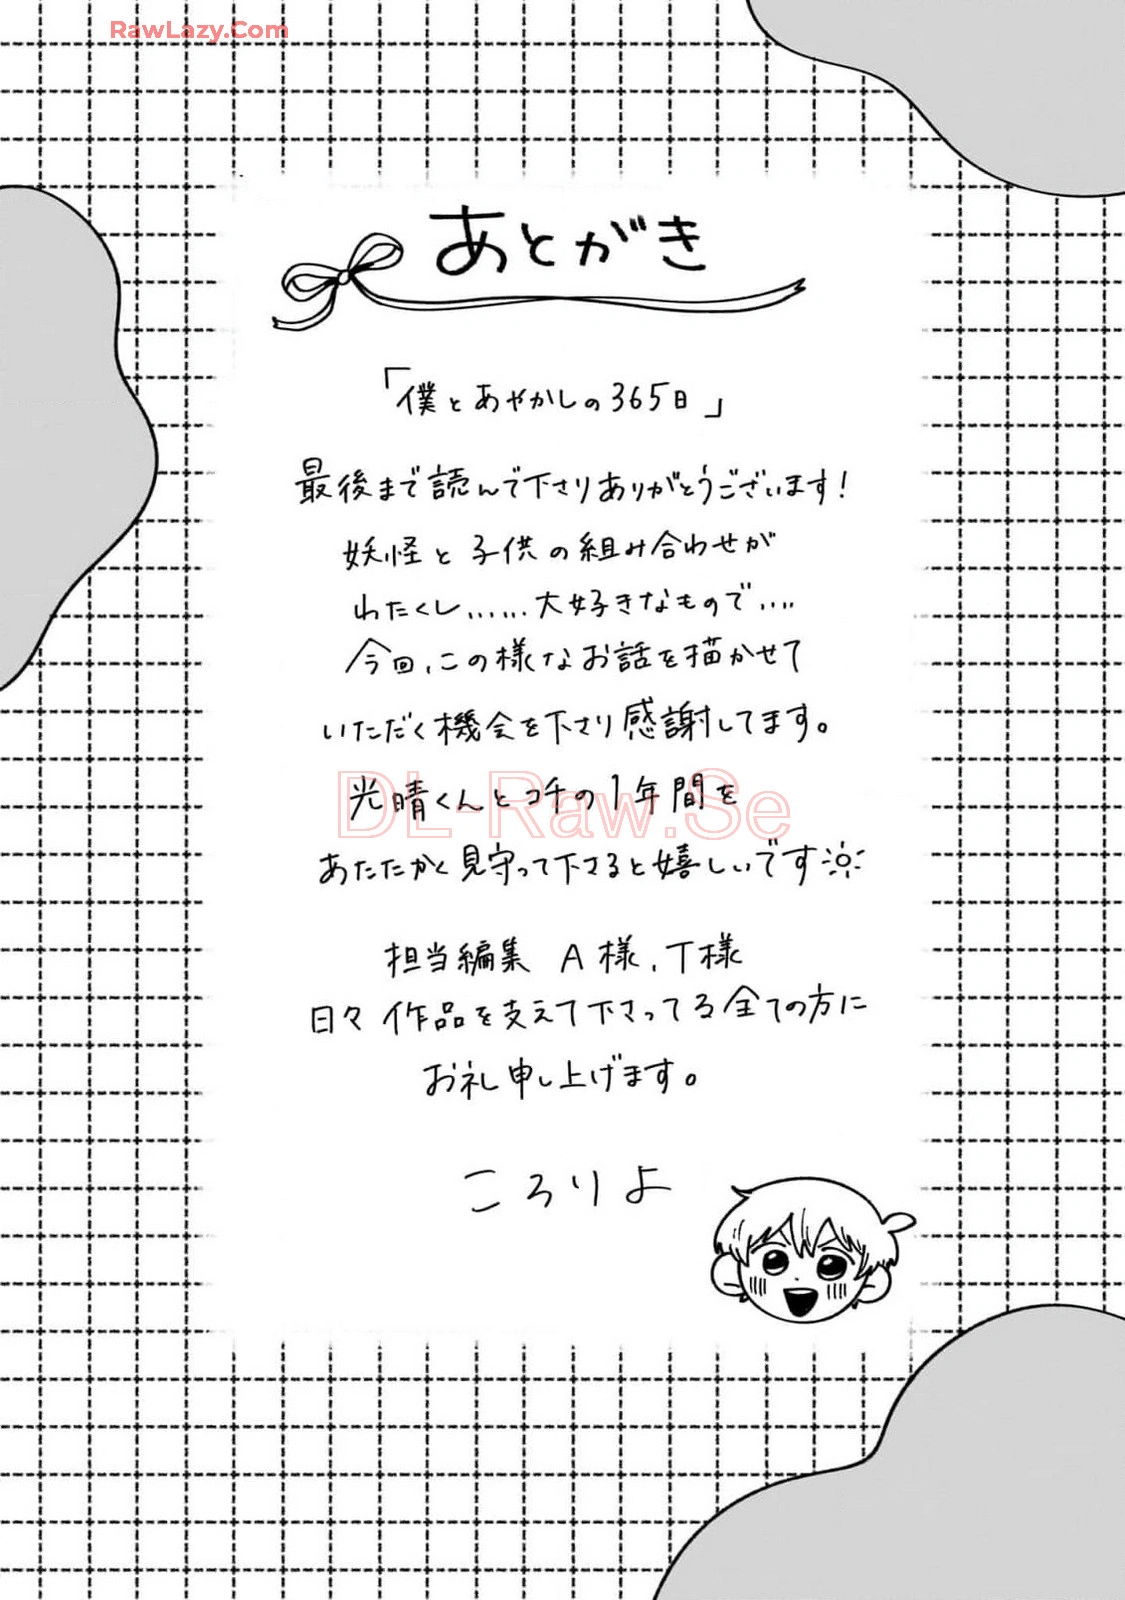 RawLazy.Com
あとがき
「僕とあやかしの365日」
最後まで読んで下さりありがとうございます!
妖怪と子供の組み合わせが
わたくし......大好きなもので....
今回、この様なお話を描かせて
いただく機会を下さり感謝してます。
光晴くんとコチの1年間を
DL-Raw.Se
あたたかく見守って下さると嬉しいです
担当編集 A様、T様
日々作品を支えて下さってる全ての方に
お礼申し上げます。
ころりよ